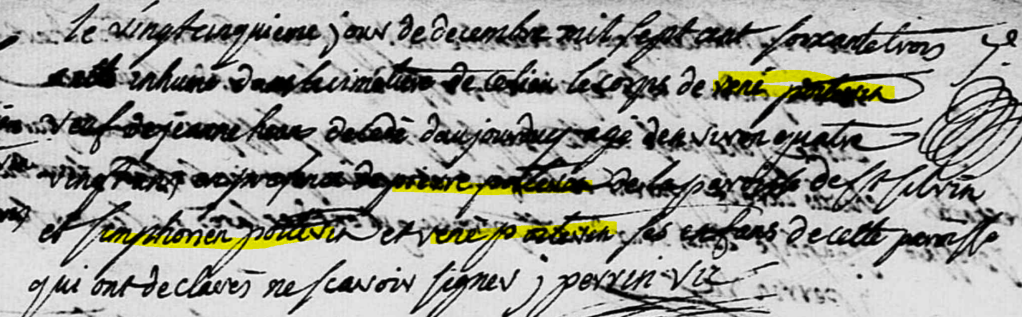 le vingtcinquieme jour de decembre mil sept cent soixantetrois
a ette inhumé dans le cimetiere de ce lieu le corps de rené poitevin
veuf de jeanne decedé daujourdhuy agé denviron quatre
vingt ans en presence de pierre poitevin de la paroisse de st silvin
et simphorien poitevin et rené poitevin ses enfans de cette paroisse
qui ont declarés ne scavoir signer perrin vic